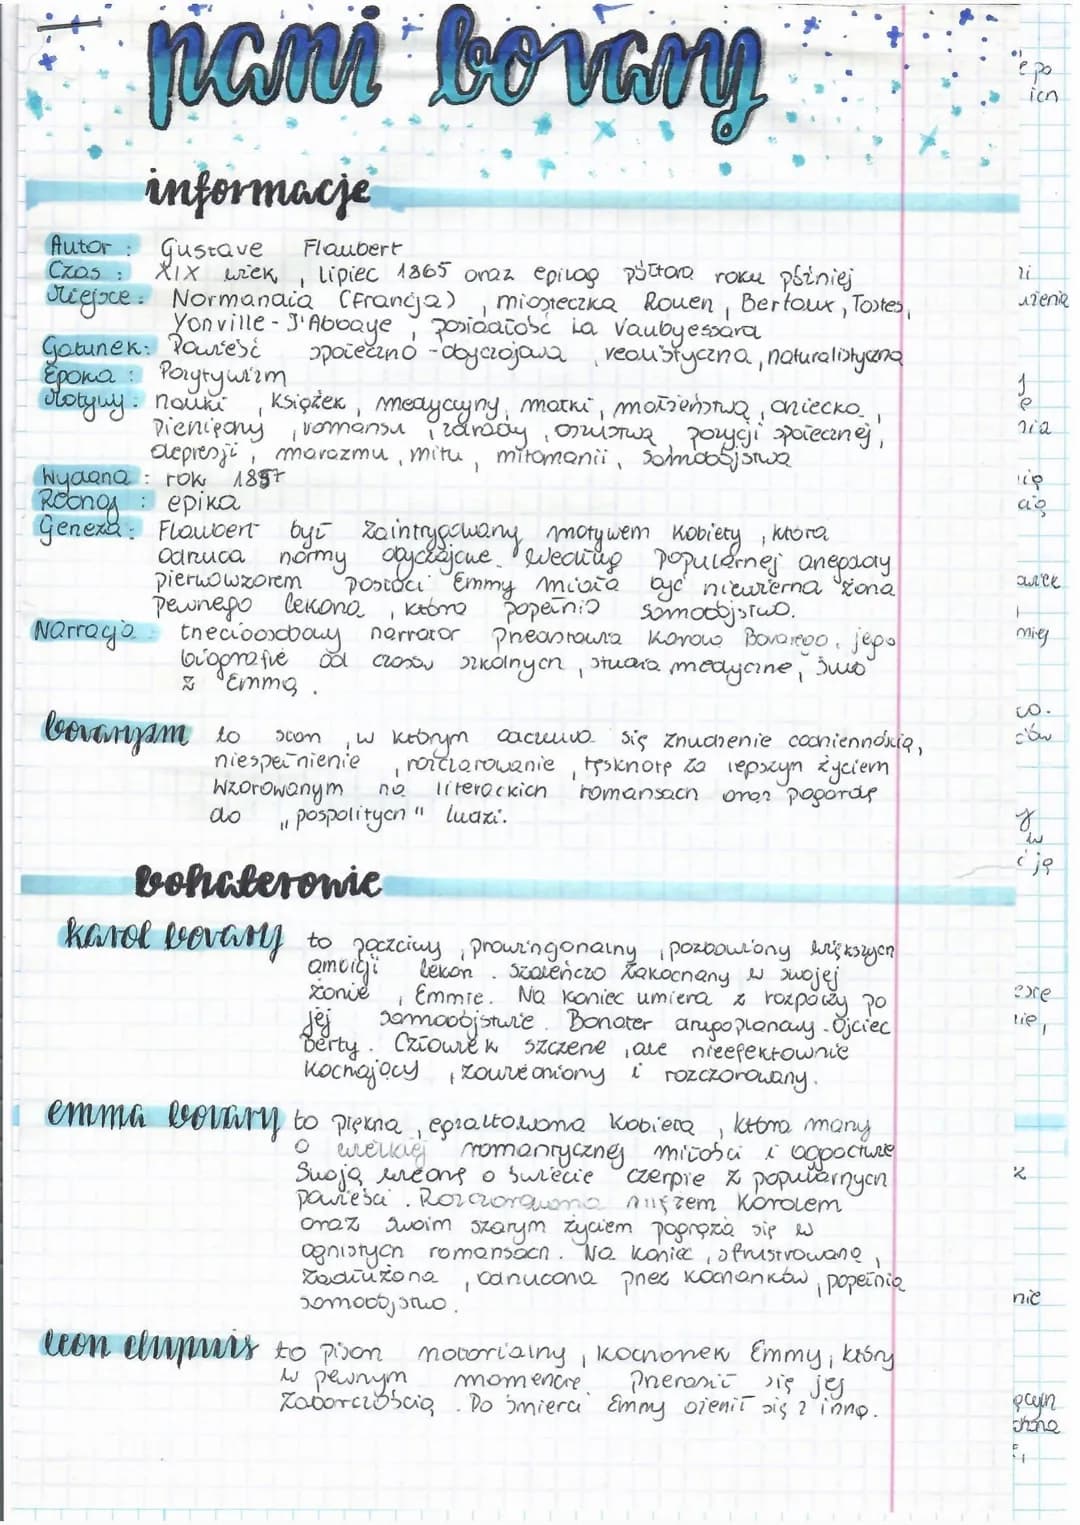 pani bovary
informacje
Autor : Gustave Flaubert
Czas : XIX wiek, lipiec 1865 oraz epilog półtora roku później
Miejsce : Normandia (Francja), miasteczka Rouen, Bertaux, Tostes,
Yonville-J'Abbaye, posiadłość La Vaubyessard
Gatunek: Powieść społeczno-obyczajowa, realistyczna, naturalistyczna
Epoka : Pozytywizm
Motywy: nauki, książek, medycyny, matki, małżeństwa, dziecka,
pieniędzy, romansu, zdrady, oszustwa, pozycji społecznej,
depresji, marazmu, mitu, mitomanii, samobójstwa
Wydana : rok 1857
Rodzaj : epika
Geneza: Flaubert był zaintrygowany motywem kobiety, która
odrzuca normy obyczajowe. Według popularnej anegdoty
pierwowzorem postaci Emmy miała być niewierna żona
pewnego lekarza, która popełnia samobójstwo.
Narracja trzecioosobowy narrator przedstawia Karola Bovarego, jego
biografię od czasów szkolnych, studia medyczne, ślub
z Emmą.
bovaryzm to stan, w którym odczuwa się znudzenie codziennością,
niespełnienie, rozczarowanie, tęsknotę za lepszym życiem
wzorowanym na literackich romansach oraz pogardę
do „pospolitych" ludzi.
bohaterowie
karol bovary to poczciwy, prowincjonalny, pozbawiony większych
ambicji lekarz. Szaleńczo zakochany w swojej
żonie, Emmie. Na koniec umiera z rozpaczy po
jej samobójstwie. Bohater drugoplanowy. Ojciec
Berty. Człowiek szczerze, ale nieefektownie
kochający, zdradzony i rozczarowany.
emma bovary to piękna, egzaltowana kobieta, która marzy
o wielkiej romantycznej miłości i bogactwie
Swoją wiedzę o świecie czerpie z popularnych
powieści. Rozczarowana mężem Karolem
oraz swoim szarym życiem pogrąża się w
ognistych romansach. Na koniec, sfrustrowana,
zadłużona, odrzucona przez kochanków, popełnia
samobójstwo.
leon dupuis to pisarz notarialny, kochanek Emmy, który
w pewnym momencie przeraził się jej
zaborczością. Po śmierci Emmy ożenił się z inną.